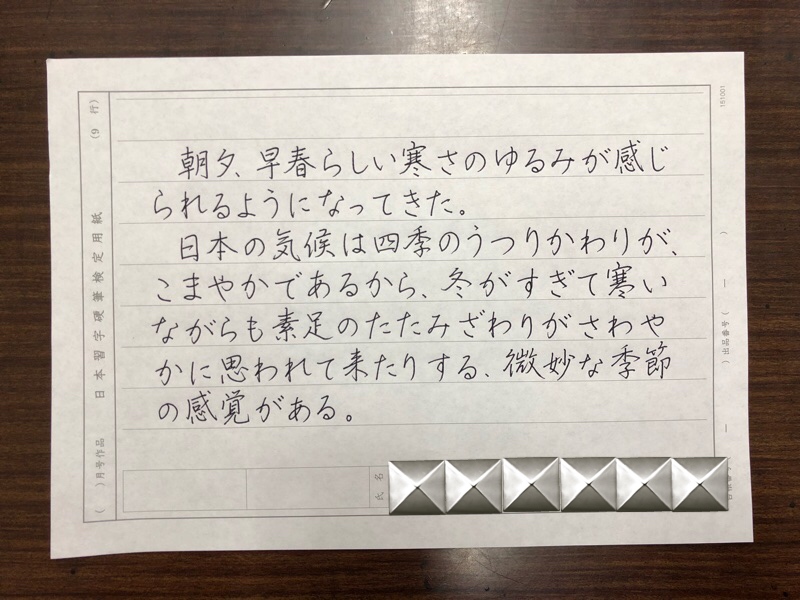 朝夕、早春らしい寒さのゆるみが感じ
られるようになってきた。
日本の気候は四季のうつりかわりが、
こまやかであるから、冬がすぎて寒い
ながらも素足のたたみざわりがさわや
かに思われて来たりする、微妙な季節
の感覚がある。
(　)月号作品　日本習字硬筆検定用紙　(9 行)
氏名
)出品番号(　—　)
181001